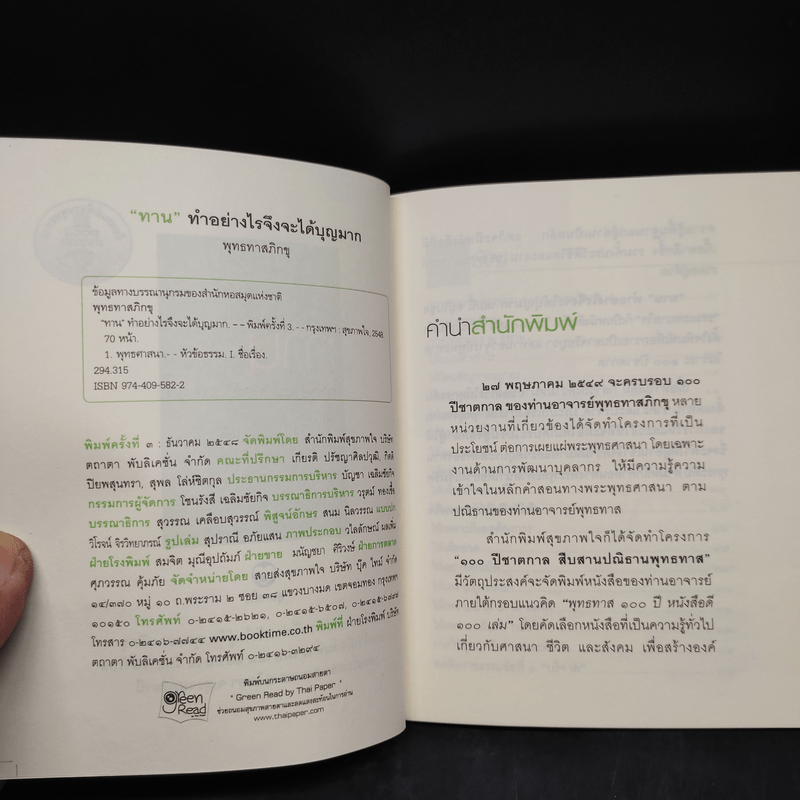 "ทาน" ทำอย่างไรจึงจะได้บุญมาก
พุทธทาสภิกขุ
ข้อมูลทางบรรณานุกรมของสำนักหอสมุดแห่งชาติ
พุทธทาสภิกขุ
"ทาน" ทำอย่างไรจึงจะได้บุญมาก. -- พิมพ์ครั้งที่ 3. -- กรุงเทพฯ : สุขภาพใจ, 2548
70 หน้า.
1. พุทธศาสนา.-- หัวข้อธรรม. I. ชื่อเรื่อง.
294.315
ISBN 974-409-582-2
พิมพ์ครั้งที่ ๓ : ธันวาคม ๒๕๔๘ จัดพิมพ์โดย สำนักพิมพ์สุขภาพใจ บริษัท
ตถาตา พับลิเคชั่น จำกัด คณะที่ปรึกษา เกียรติ ปรัชญาศิลปวุฒิ, กิตติ
ปิยพสุนทรา, สุพล โล่ห์ชิตกุล ประธานกรรมการบริหาร บัญชา เฉลิมชัยกิจ
กรรมการผู้จัดการ โชนรังสี เฉลิมชัยกิจ บรรณาธิการบริหาร วรุตม์ ทองเชื้อ
บรรณาธิการ สุวรรณ เคลือบสุวรรณ์ พิสูจน์อักษร สนม นิลวรรณ แบบปก
วิโรจน์ จิรวิทยาภรณ์ รูปเล่ม สุปราณี อภัยแสน ภาพประกอบ วไลลักษณ์ ผลเพิ่ม
ฝ่ายโรงพิมพ์ สมจิต มุณีอุปถัมภ์ ฝ่ายขาย มนัญชยา ศิริวงษ์ ฝ่ายการตลาด
ศุภวรรณ คุ้มภัย จัดจำหน่ายโดย สายส่งสุขภาพใจ บริษัท บุ๊ค ไทม์ จำกัด
๑๔/๓๗๐ หมู่ ๑๐ ถ.พระราม ๒ ซอย ๓๘ แขวงบางมด เขตจอมทอง กรุงเทพฯ
๑๐๑๕๐ โทรศัพท์ ๐-๒๔๑๕-๒๖๒๑, ๐-๒๔๑๕-๖๕๐๗, ๐-๒๔๑๕-๖๗๙๗
โทรสาร ๐-๒๔๑๖-๗๗๔๔ www.booktime.co.th พิมพ์ที่ ฝ่ายโรงพิมพ์ บริษัท
ตถาตา พับลิเคชั่น จำกัด โทรศัพท์ ๐-๒๔๑๖-๓๒๙๔
green Read
พิมพ์บนกระดาษถนอมสายตา
" Green Read by Thai Paper "
ช่วยถนอมสุขภาพสายตาและลดแสงสะท้อนในการอ่าน
www.thaipaper.com
คำนำสำนักพิมพ์
๒๗ พฤษภาคม ๒๕๔๙ จะครบรอบ ๑๐๐
ปีชาตกาล ของท่านอาจารย์พุทธทาสภิกขุ หลาย
หน่วยงานที่เกี่ยวข้องได้จัดทำโครงการที่เป็น
ประโยชน์ ต่อการเผยแผ่พระพุทธศาสนา โดยเฉพาะ
งานด้านการพัฒนาบุคลากร ให้มีความรู้ความ
เข้าใจในหลักคำสอนทางพระพุทธศาสนา ตาม
ปณิธานของท่านอาจารย์พุทธทาส
สำนักพิมพ์สุขภาพใจก็ได้จัดทำโครงการ
"๑๐๐ ปีชาตกาล สืบสานปณิธานพุทธทาส"
มีวัตถุประสงค์จะจัดพิมพ์หนังสือของท่านอาจารย์
ภายใต้กรอบแนวคิด "พุทธทาส ๑๐๐ ปี หนังสือดี
๑๐๐ เล่ม" โดยคัดเลือกหนังสือที่เป็นความรู้ทั่วไป
เกี่ยวกับศาสนา ชีวิต และสังคม เพื่อสร้างองค์